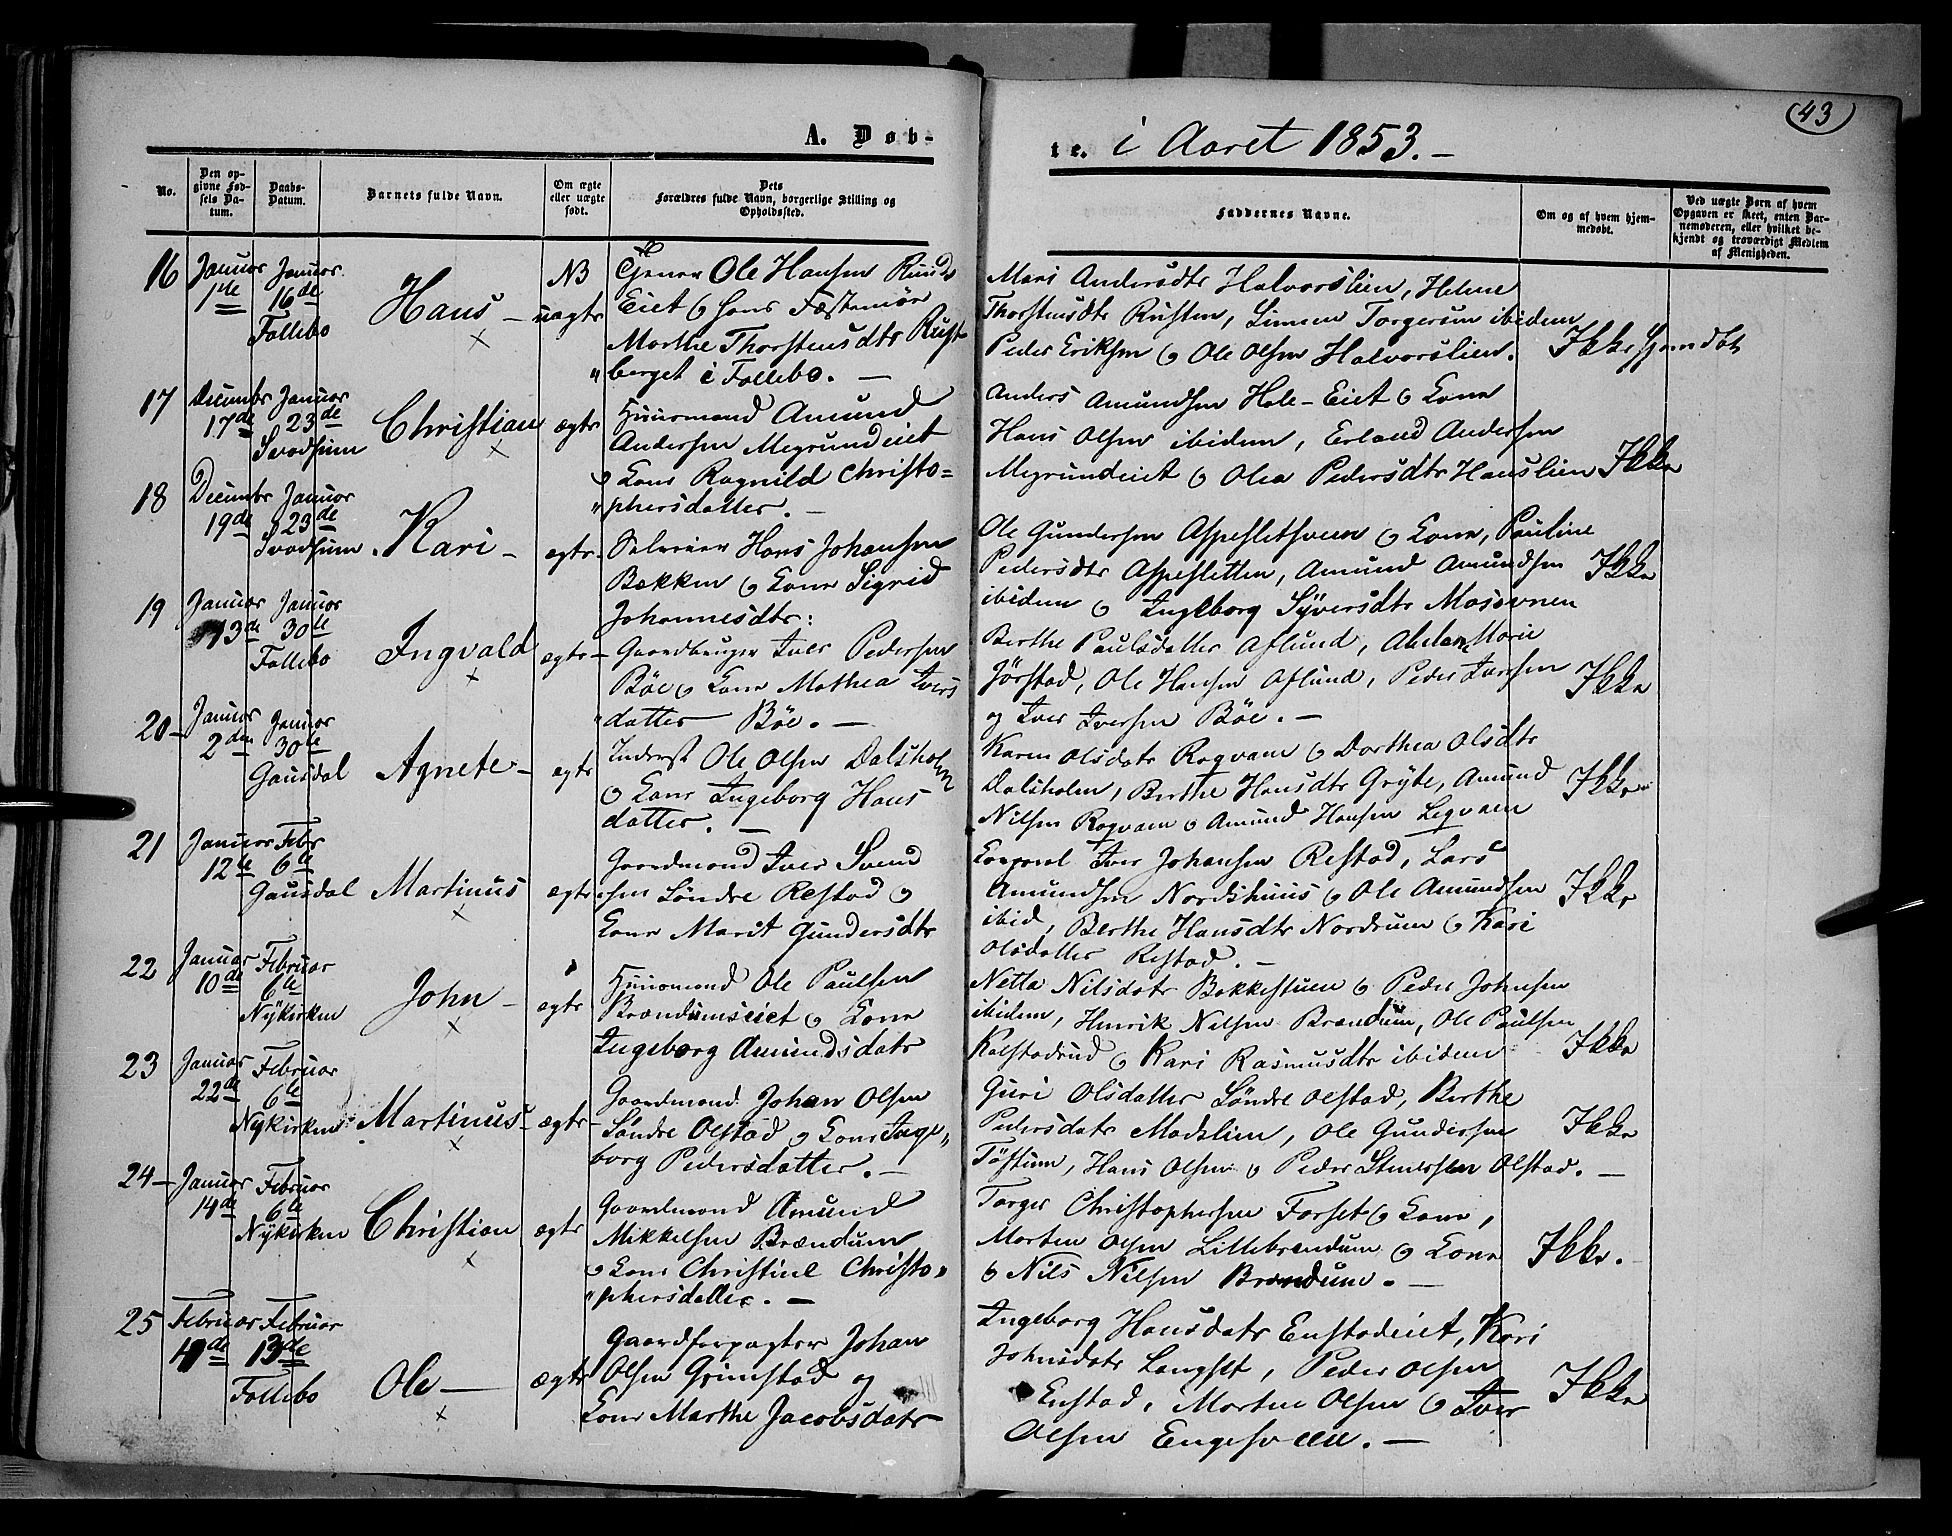 43
A. Døb-
te. i Aaret 1853.-
No.
Den op-
givne Fød-
sels Da-
tum.
Daabs-
Datum.
Barnets fulde Navn.
Om ægte
eller uægte
født.
Dets
Forældres fulde Navn, borgerlige Stilling og
Opholdssted.
Faddernes Navne.
Om og af hvem hjem-
medøbt.
Ved uægte Børn af hvem
Opgaven er skeet, enten Bar-
nemoderen, eller hvilket be-
kjendt og troværdigt Medlem
af Menigheden.
16
Januar
1ste
Januar
16de
Follebo
Hans -
NB
uægte
Ole Hansen Ruuds
Eiet & hans Fæstemøe
Marthe Thorstensdtr Rust
"berget i Follebo. -
Mari Andersdtr Halvorslien, Helene
Thorstensdtr Rusten, Simen Torgersen ibidem
Peder Eriksen & Ole Olsen Halvorslien.
Ikke hjemdøbt
17
Decembr
17de
Januar
23de
Svadsum
Christian
ægte
Huusmand Amund
Andersen Megrundeiet
& Kone Ragnild Christo=
"phersdatter. -
Anders Amundsen Hole-Eiet & Kone
Hans Olsen ibidem, Erland Andersen
Megrundeiet & Olea Pedersdtr Hauslien
Ikke
18
Decembr
19de
Januar
23de
Svadsum
Kari -
ægte
Selveier Hans Johansen
Bækken & Kone Sigrid
Johannesdtr:
Ole Gundersen Aspesletsveen & Kone, Pauline
Pedersdtr Aspesletten, Amund Amundsen
ibidem & Ingeborg Syversdtr Moshovnen
Ikke
19
Januar
13de
Januar
30te
Follebo
Ingvald
ægte -
Gaardbruger Iver Pedersen
Bøe & Kone Mathea Ivers
"datter Bøe. -
Berthe Paulsdatter Aflund, Marie
Jørstad, Ole Hansen Aflund, Peder Iversen
og Iver Iversen Bøe. -
Ikke
20 -
Januar
2den
Januar
30te
Gausdal
Agnete -
ægte
Inderst Ole Olsen Dalsholm
& Kone Ingeborg Hans
datter. -
Karen Olsdatr Rogvam & Dorthea Olsdtr
Dalsholm, Berthe Hansdtr Gryte, Amund
Nilsen Rogvam & Amund Hansen Legvam
Ikke
21
Januar
12te
Febr
6te
Gausdal
Martinus
ægte
Gaardmand Iver Svend
sen Søndre Restad &
Kone Marit Gundersdtr
Corporal Iver Johansen Restad, Lars
Amundsen Nordshuus & Ole Amundsen
ibid, Berthe Hansdtr Nordrum & Kari
Olsdatter Restad. -
Ikke
22
Januar
10de
Februar
6te
Nykirken
John -
ægte
Huusmand Ole Paulsen
Brændumseiet & Kone
Ingeborg Amundsdatr
Netta Nilsdatr Bakkestuen & Peder Johnsen
ibidem, Henrik Nilsen Brændum, Ole Paulsen
Kalstadrud & Kari Rasmusdtr ibidem
Ikke
23
Januar
22de
Februar
6te
Nykirken
Martinus -
ægte -
Gaardmand Johan Olsen
Søndre Olstad & Kone Inge"
borg Pedersdatter. -
Guri Olsdatter Søndre Olstad, Berthe
Pedersdatr Madslien, Ole Gundersen
Tøftum, Hans Olsen & Peder Steversen Olstad. -
Ikke
24 -
Januar
14de
Februar
6te
Nykirken
Christian
ægte
Gaardmand Amund
Mikkelsen Brændum
& Kone Christine Christo"
"phersdatter. -
Torger Christophersen Forset & Kone,
Morten Olsen Lillebrændum & Kone
& Nils Nilsen Brændum. -
Ikke.
25
Februar
4de
Februar
13de
Follebo
Ole -
ægte
Gaardforpagter Johan
Olsen Grimstad og
Kone Marthe Jacobsdatr
Ingeborg Hansdatr Enstadeiet, Kari
Johnsdatr Langset, Peder Olsen
Enstad, Morten Olsen & Iver
Olsen Engesveen. -
Ikke